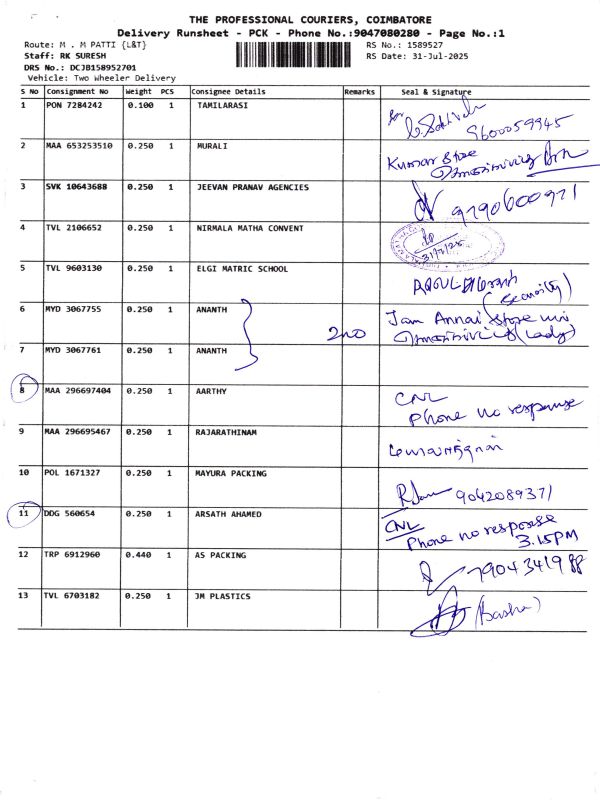 THE PROFESSIONAL COURIERS, COIMBATORE
Delivery Runsheet - PCK - Phone No.:9047080280 - Page No.:1
Route: M . M PATTI {L&T} RS No.: 1589527
Staff: RK SURESH RS Date: 31-Jul-2025
DRS No.: DCJB158952701
Vehicle: Two Wheeler Delivery
S No Consignment No Weight PCS Consignee Details Remarks Seal & Signature
1 PON 7284242 0.100 1 TAMILARASI
9600059945
2 MAA 653253510 0.250 1 MURALI Kumar Store
3 SVK 10643688 0.250 1 JEEVAN PRANAV AGENCIES 9190600971
4 TVL 2106652 0.250 1 NIRMALA MATHA CONVENT 31/7/25
5 TVL 9603130 0.250 1 ELGI MATRIC SCHOOL
(Security)
6 MYD 3067755 0.250 1 ANANTH 2no Jam Annai Store
(Lady)
7 MYD 3067761 0.250 1 ANANTH
8 MAA 296697404 0.250 1 AARTHY CNL
Phone no response
9 MAA 296695467 0.250 1 RAJARATHINAM
10 POL 1671327 0.250 1 MAYURA PACKING 9042089371
11 DDG 560654 0.250 1 ARSATH AHAMED CNL
Phone no response
3.15PM
12 TRP 6912960 0.440 1 AS PACKING 7904341988
13 TVL 6703182 0.250 1 JM PLASTICS (Basha)